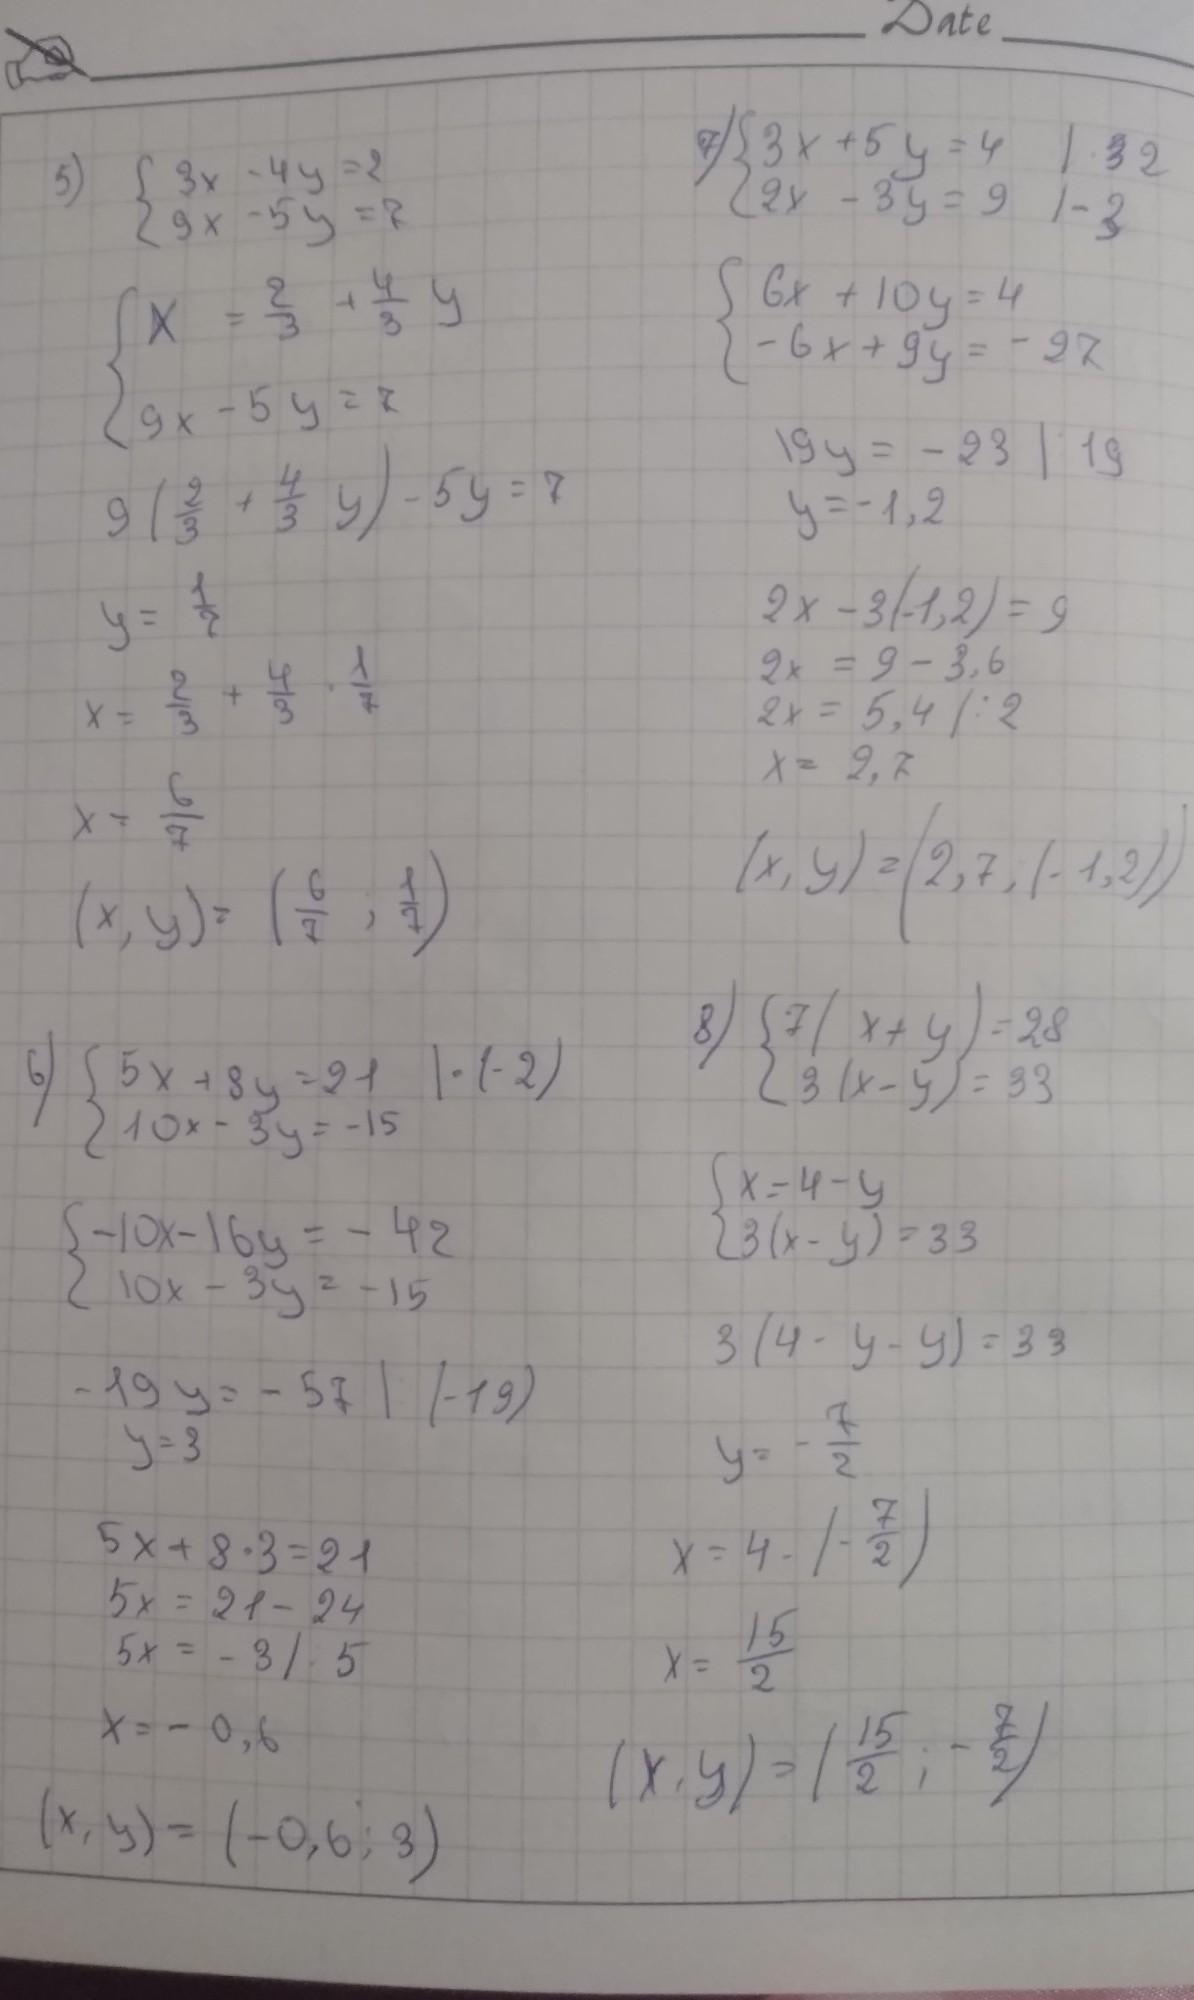 Date
5) { 3x - 4y = 2
9x - 5y = 7
{ x = 2/3 + 4/3 y
9x - 5y = 7
9 ( 2/3 + 4/3 y ) - 5y = 7
y = 1/7
x = 2/3 + 4/3 · 1/7
x = 6/7
(x, y) = ( 6/7 ; 1/7 )
6) { 5x + 8y = 21 | · (-2)
10x - 3y = -15
{ -10x - 16y = - 42
10x - 3y = -15
-19y = - 57 | (-19)
y = 3
5x + 8 · 3 = 21
5x = 21 - 24
5x = - 3 / : 5
x = - 0,6
(x, y) = (-0,6 ; 3)
7) { 3x + 5y = 4 | · 2
2x - 3y = 9 | - 3
{ 6x + 10y = 4
-6x + 9y = - 27
19y = - 23 | : 19
y = -1,2
2x - 3(-1,2) = 9
2x = 9 - 3,6
2x = 5,4 / : 2
x = 2,7
(x, y) = (2,7 ; (-1,2))
8) { 7( x + y) = 28
3 (x - y) = 33
{ x = 4 - y
3(x - y) = 33
3 (4 - y - y) = 33
y = - 7/2
x = 4 - (- 7/2)
x = 15/2
(x, y) = ( 15/2 ; - 7/2 )